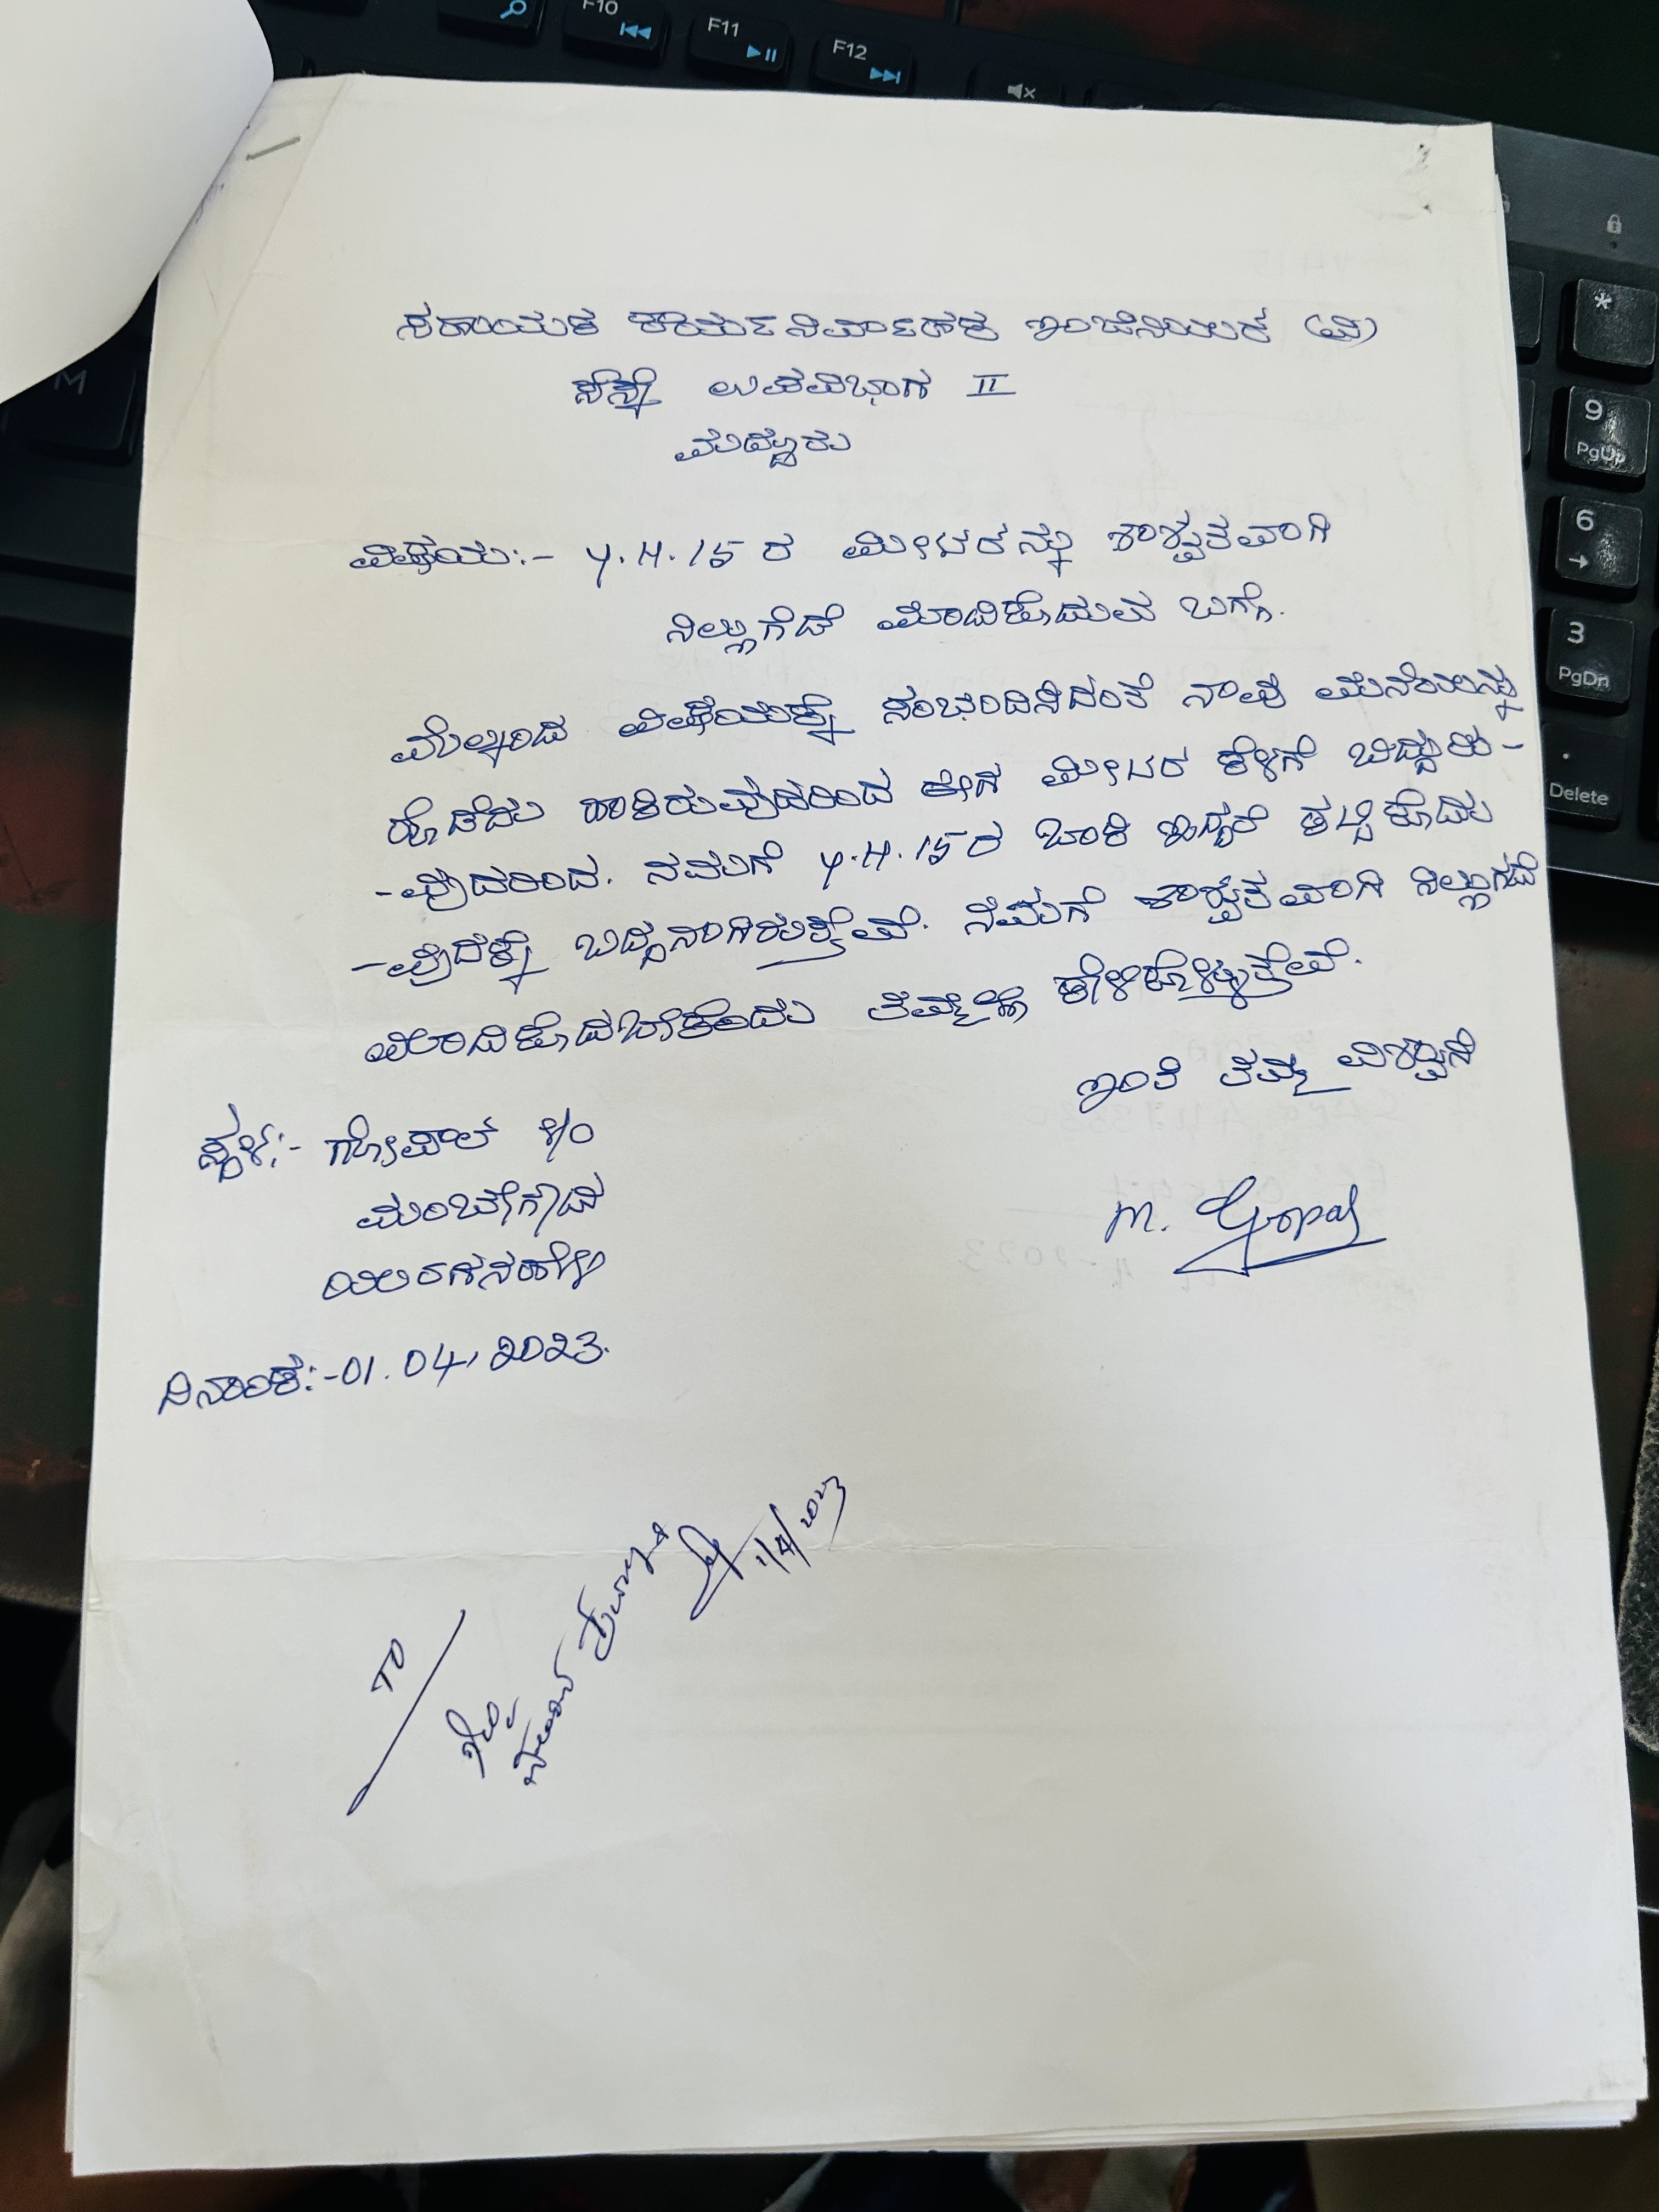 ಸಹಾಯಕ ಕಾರ್ಯನಿರ್ವಾಹಕ ಇಂಜಿನಿಯರ (ವಿ)
ಸೆಸ್ಕ್ ಉಪವಿಭಾಗ II
ಮದ್ದೂರು
ವಿಷಯ:- y.H.15 ರ ಮೀಟರನ್ನು ಶಾಶ್ವತವಾಗಿ
ನಿಲ್ಲುಗಡೆ ಮಾಡಿಕೊಡುವ ಬಗ್ಗೆ.
ಮೇಲ್ಕಂಡ ವಿಷಯಕ್ಕೆ ಸಂಭಂದಿಸಿದಂತೆ ನಾವು ಮನೆಯನ್ನು
ಹೊಡೆದು ಹಾಕಿರುವುದರಿಂದ ಈಗ ಮೀಟರ ಕೆಳಗೆ ಬಿದ್ದುರು-
-ವುದರಿಂದ. ನಮಗೆ y.H.15 ರ ಬಾಕಿ ಇದ್ದರೆ ಕಟ್ಟಿಕೊಡು
-ವುದಕ್ಕೆ ಬದ್ದನಾಗಿರುತ್ತೇವೆ. ನಮಗೆ ಶಾಶ್ವತವಾಗಿ ನಿಲ್ಲುಗಡೆ
ಮಾಡಿಕೊಡಬೇಕೆಂದು ತಮ್ಮಲ್ಲಿ ಕೇಳಿಕೊಳ್ಳುತ್ತೇವೆ.
ಇಂತಿ ತಮ್ಮ ವಿಶ್ವಾಸಿ
ಸ್ಥಳ:- ಗೋಪಾಲ s/o
ಮಂಚೇಗೌಡ
ಯರಗನಹಳ್ಳಿ
M. Gopal
ದಿನಾಂಕ:-01.04,2023.
TO
1/4/2023